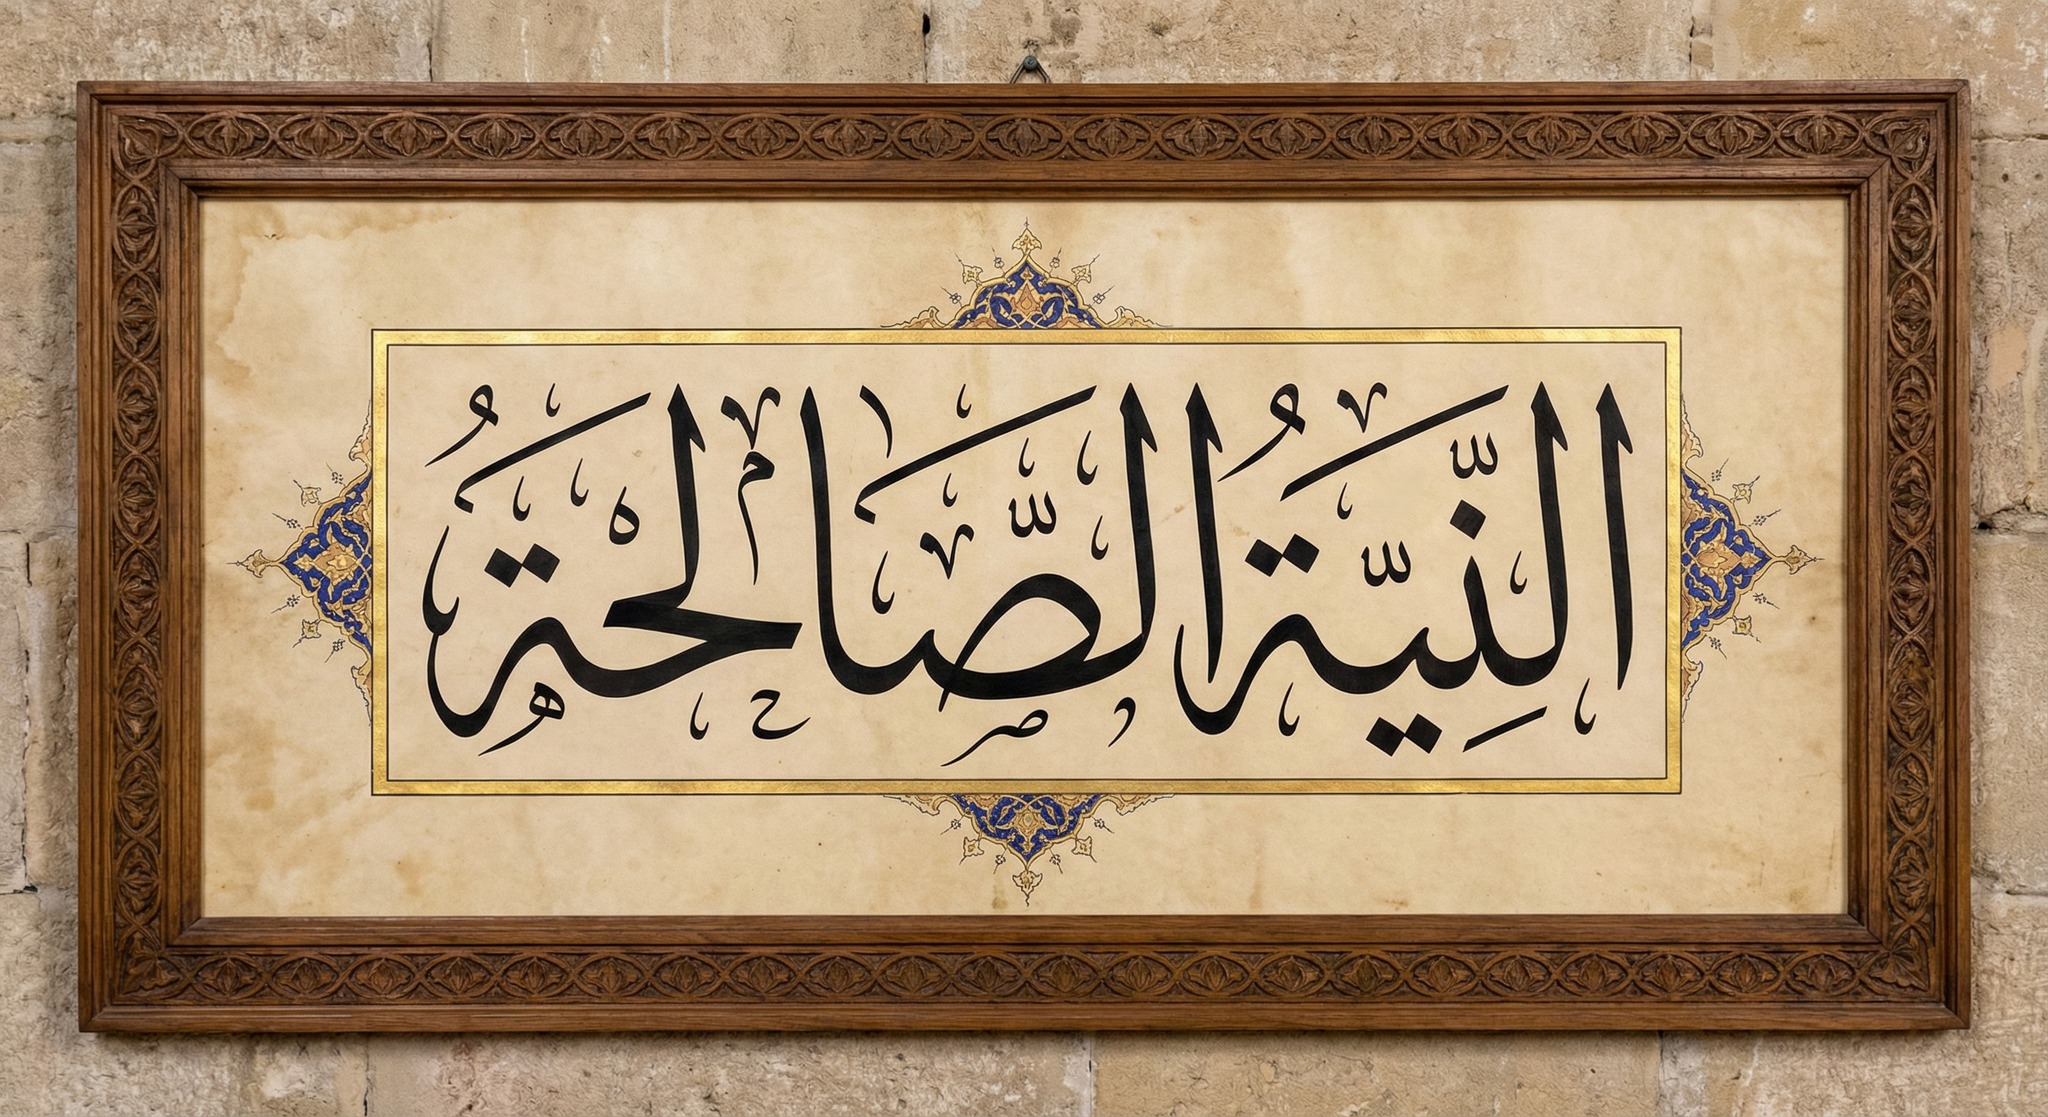 النِّيَّةُ الصَّالحَةُ